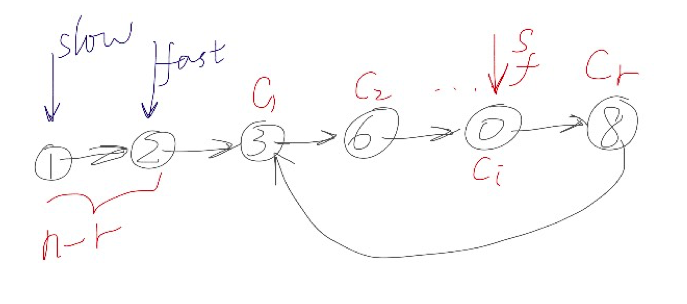 slow
fast
S
f
C1
C2
....
Cr
1
2
3
6
0
8
Ci
n-r